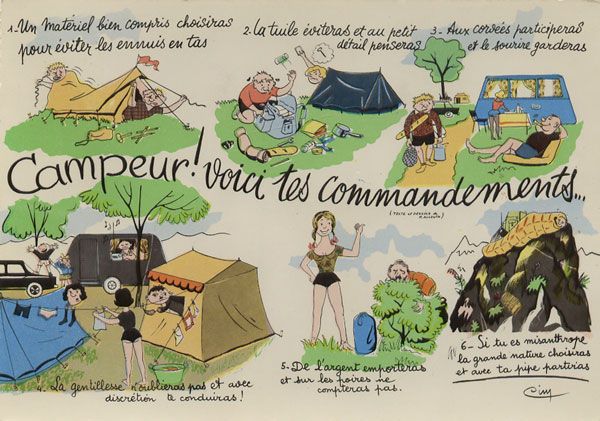 1. Un Matériel bien compris choisiras
pour éviter les ennuis en tas
2. La tuile éviteras et au petit
détail penseras
3. Aux corvées participeras
et le sourire garderas
Campeur! voici tes commandements...
(TEXTE ET DESSINS DE
4. La gentillesse n'oublieras pas et avec
discrétion te conduiras!
5. De l'argent emporteras
et sur les poires ne
compteras pas.
6. Si tu es misanthrope
la grande nature choisiras
et avec ta pipe partiras